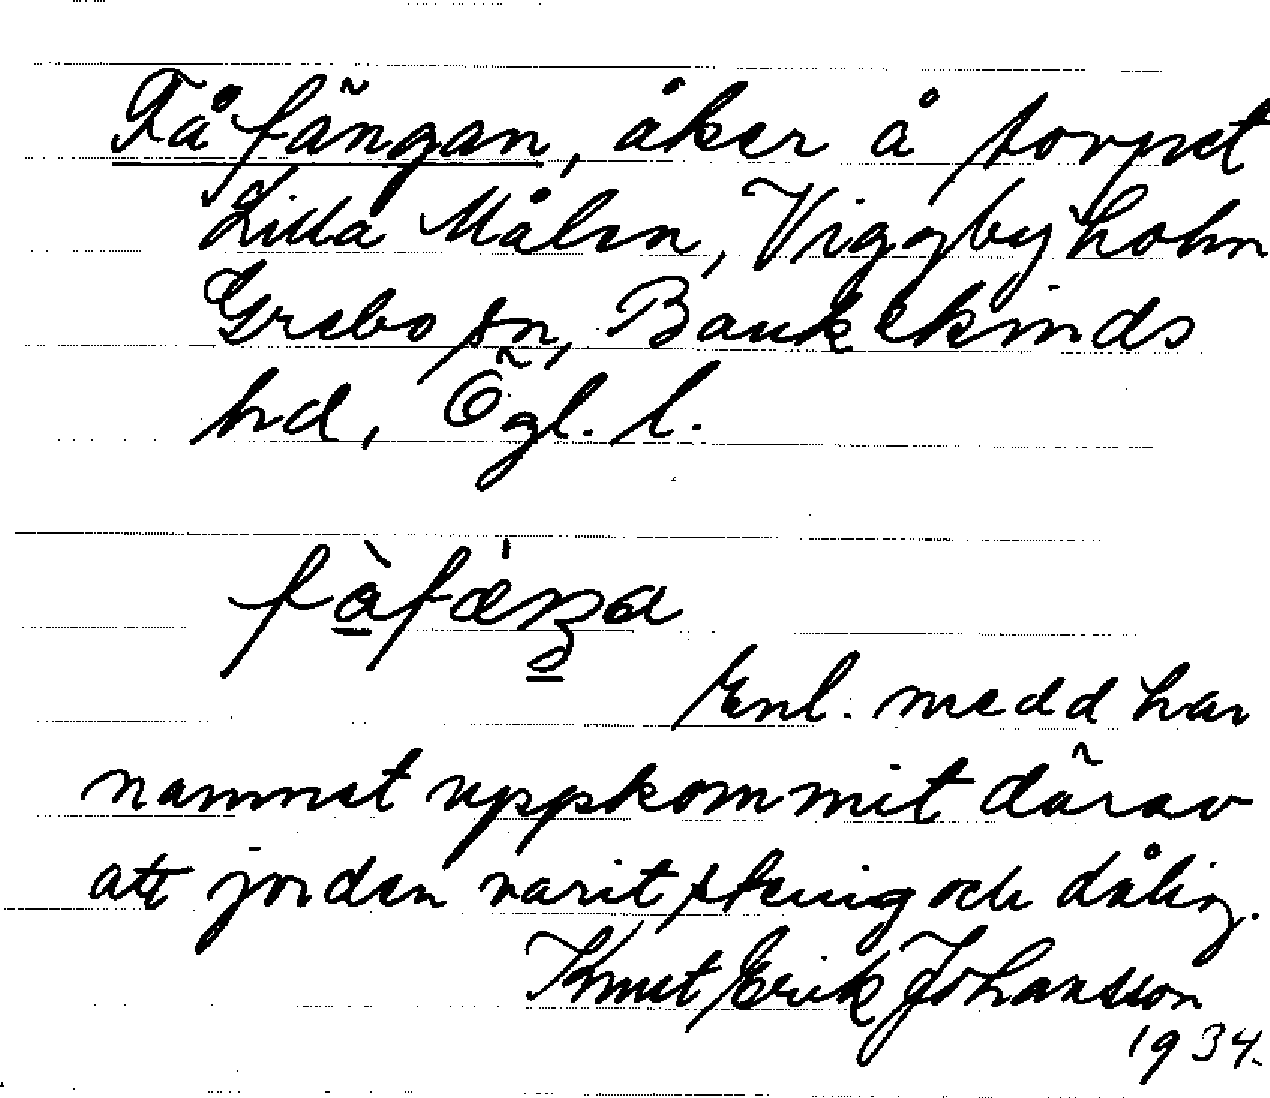 Fåfängan, åker å torpet
Lilla Målen, Viggbyholm
Grebo sn, Bankekinds
hd, Ögl. l.
fàfæŋa
Enl. medd har
namnet uppkommit därav
att jorden varit stenig och dålig.
Knut Erik Johansson
1934.